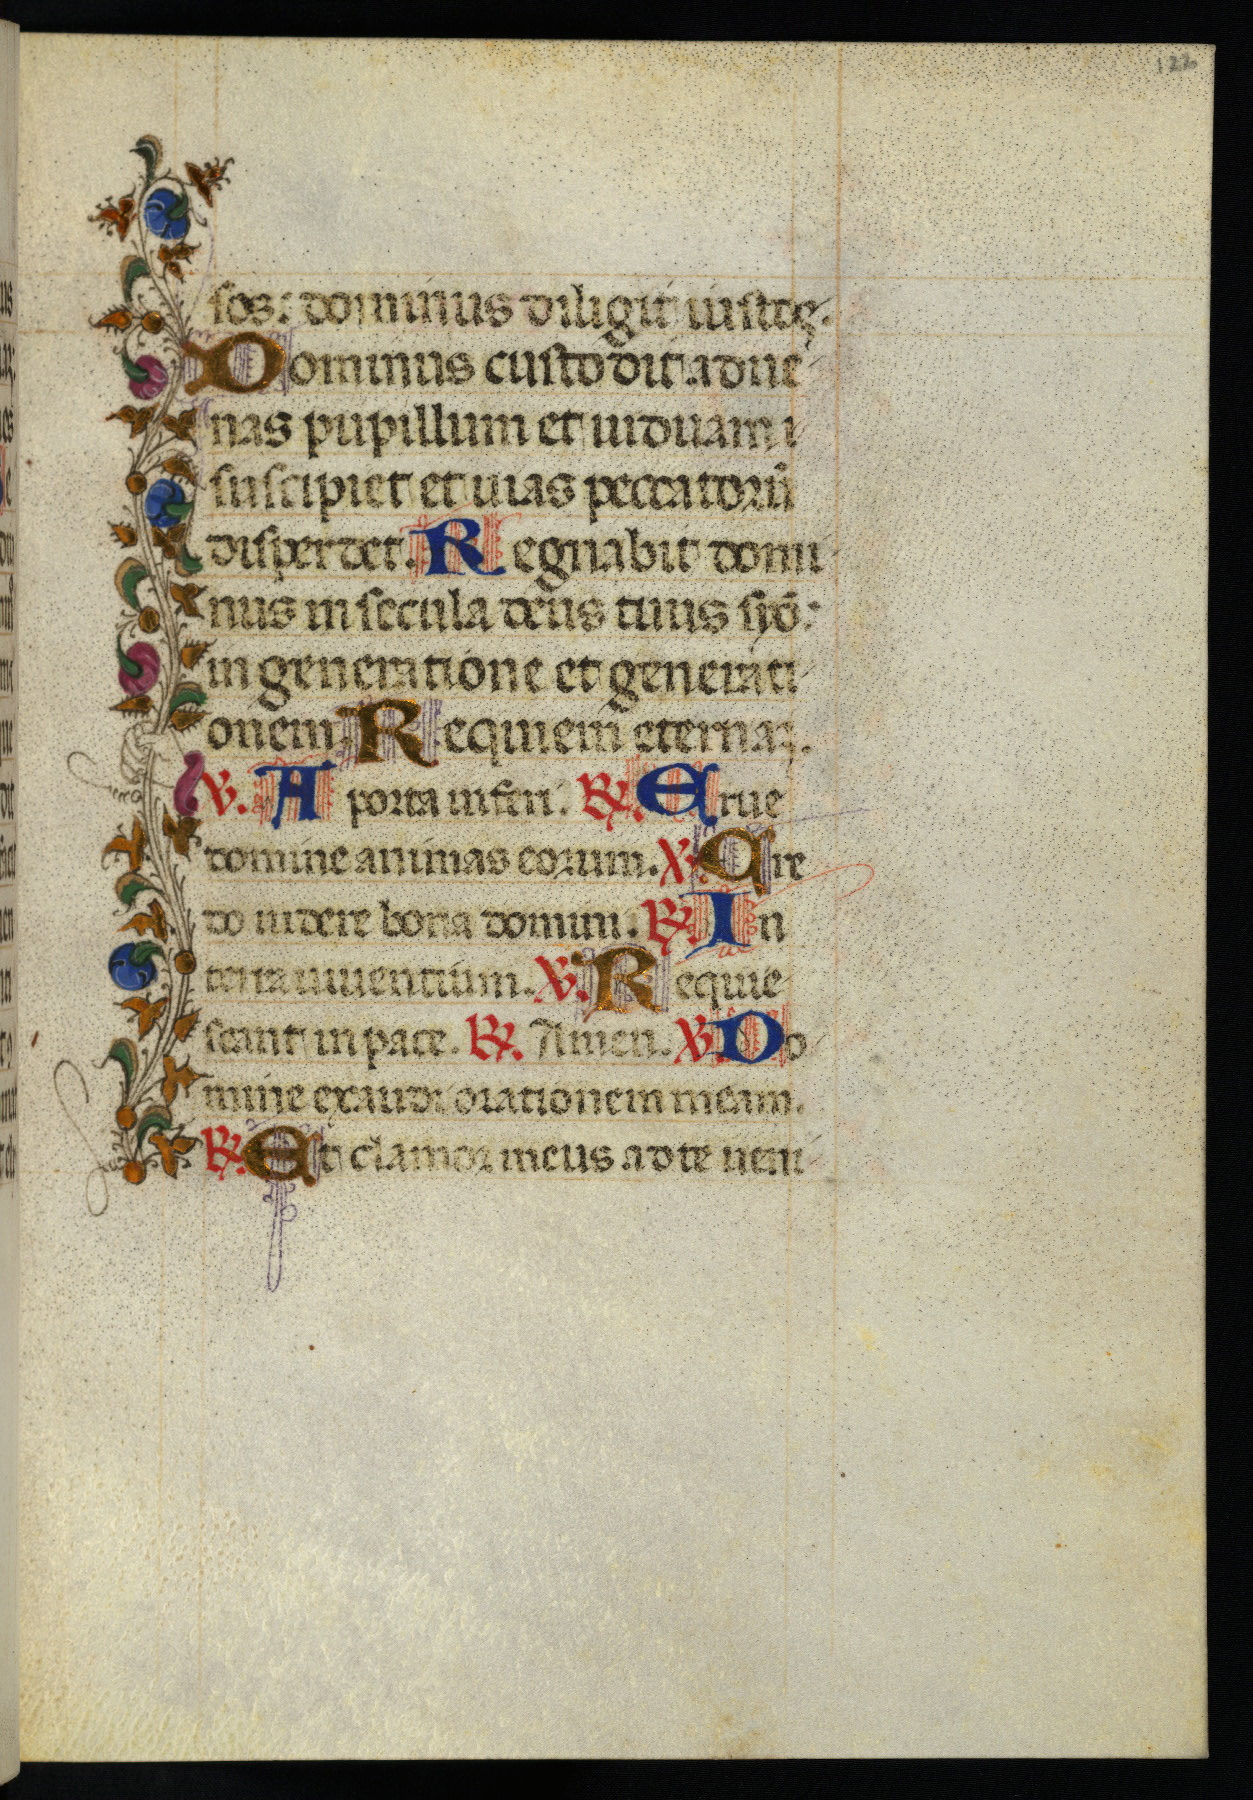 122
sos: dominus diligit iustos.
Dominus custodit adue
nas pupillum et uiduam i
suscipiet et uias peccatorū
disperdet. Regnabit domi
nus in secula deus tuus syō:
in generatione et generati
onem. Requiem eternaʒ.
℣. A porta inferi. ℟. Erue
domine animas eorum. ℣. Cre
do uidere bona domini. ℟. In
terra uiuentium. ℣. Requie
scant in pace. ℟. Amen. ℣. Do
mine exaudi orationem meam.
℟. Et clamor meus ad te ueni